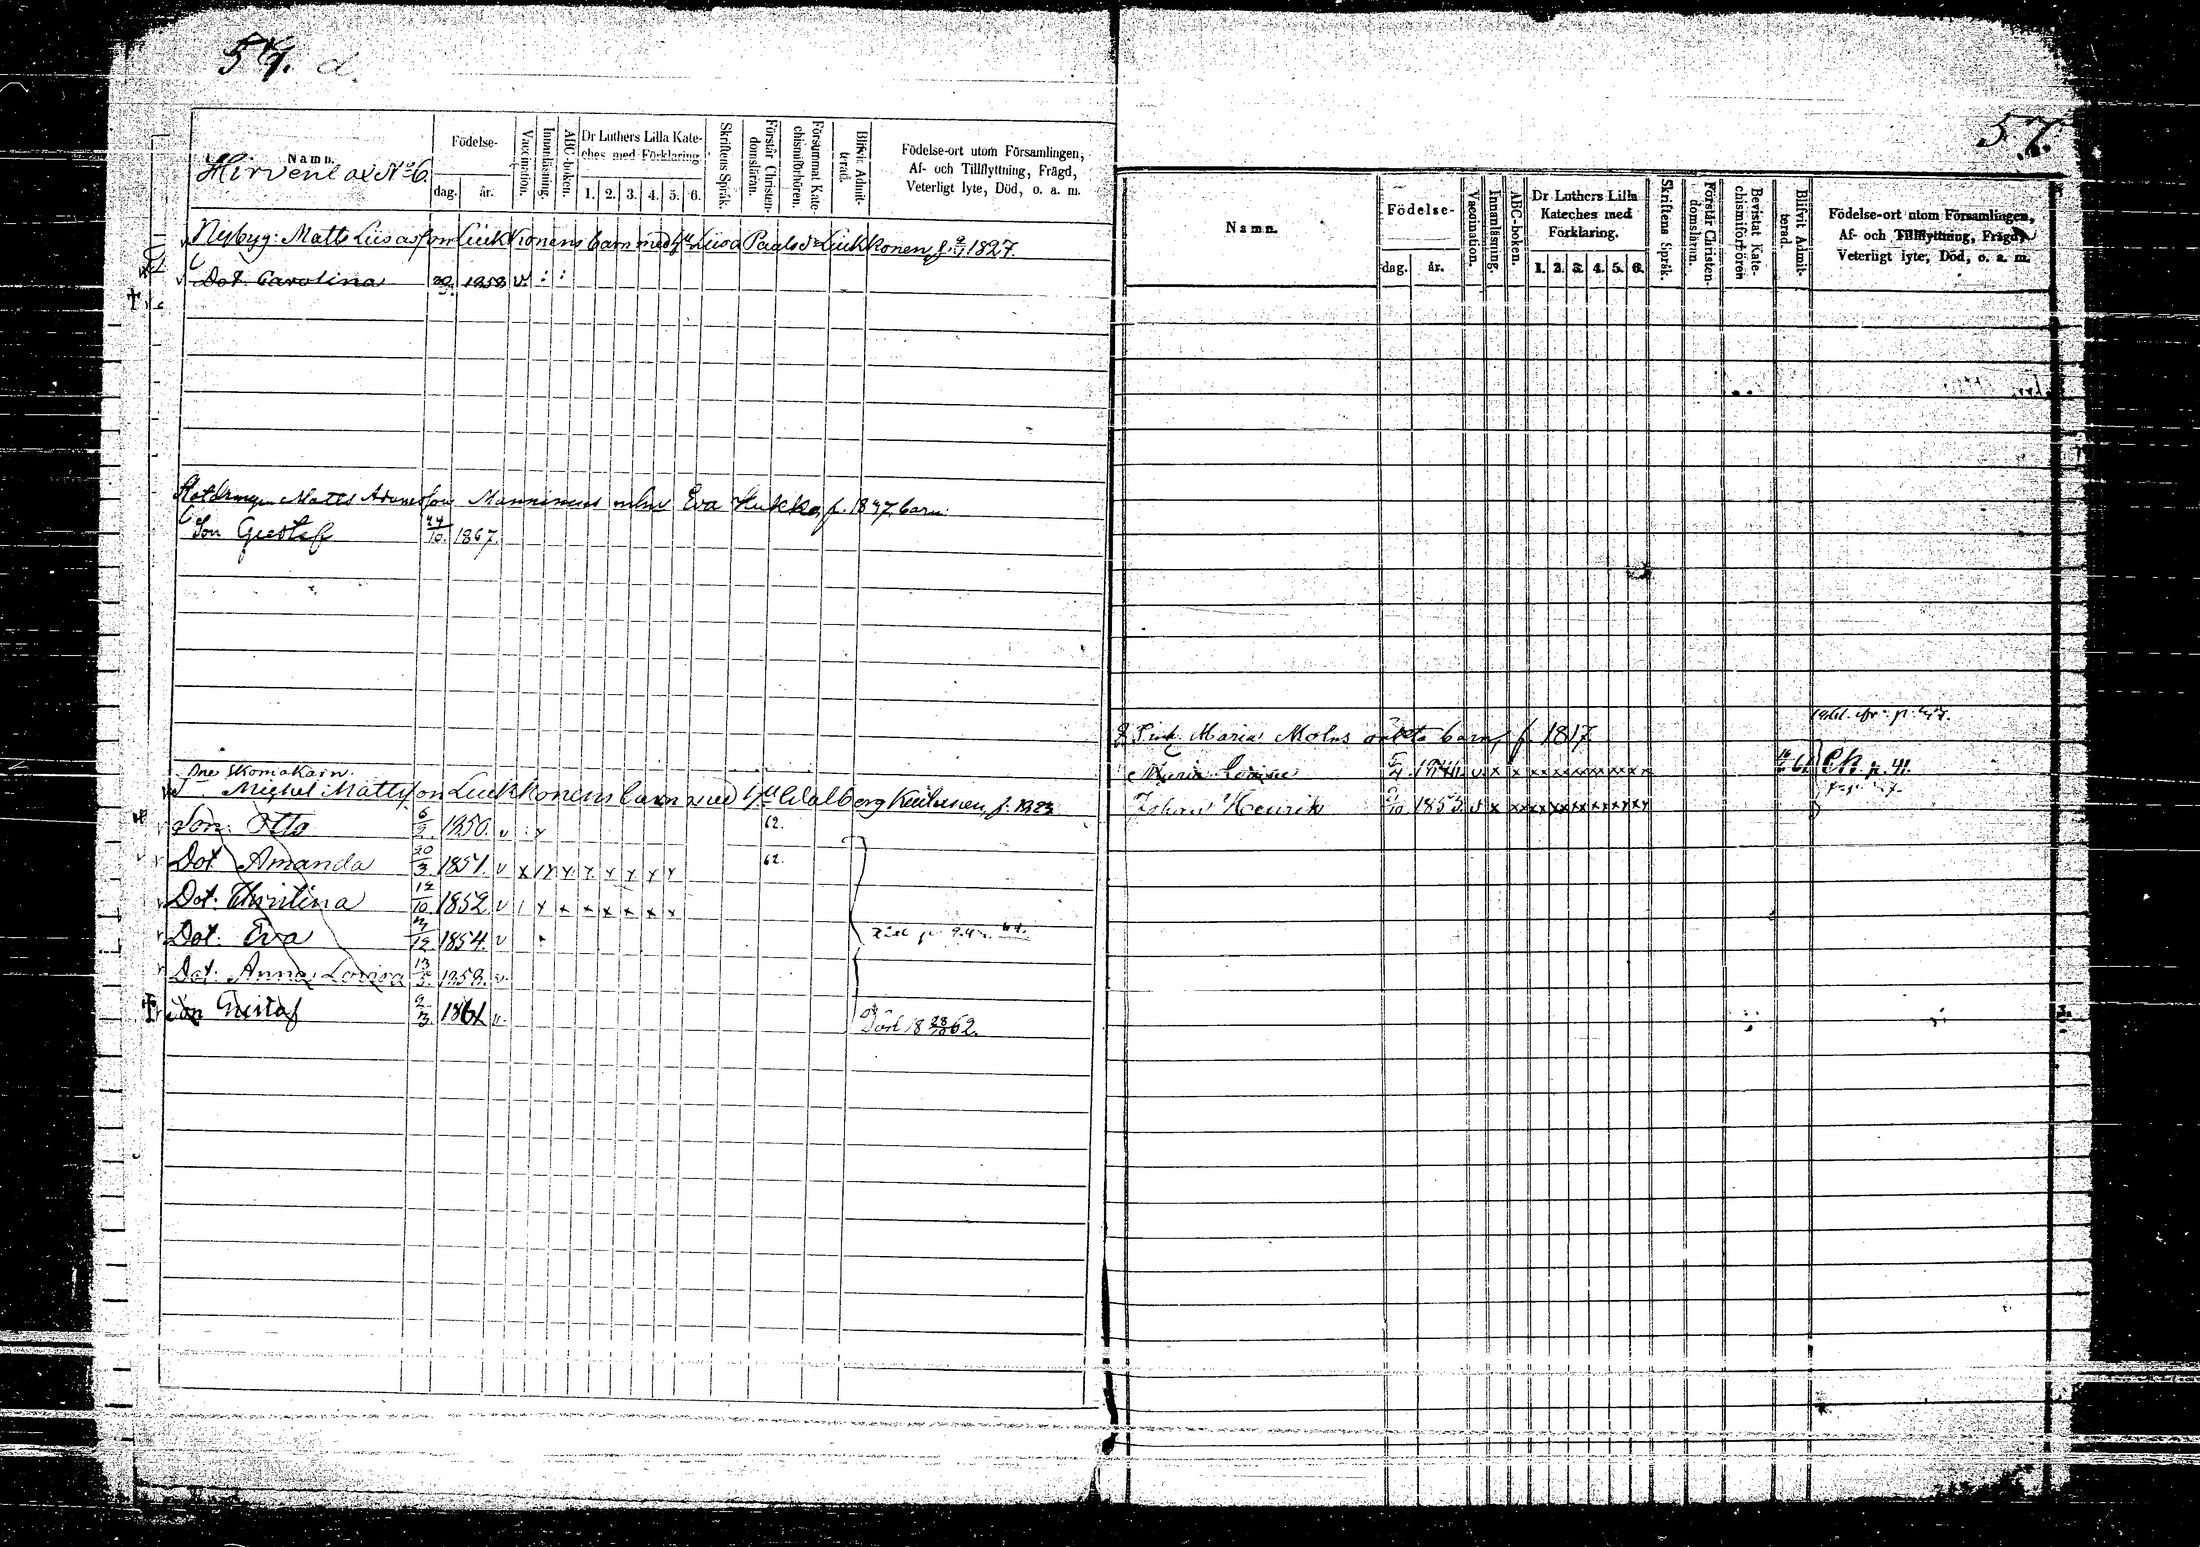 57. d.
Namn.
Hirvenlax No 6.
Födelse-
dag. år.
Vaccination.
Innanläsning.
ABC-boken.
Dr Luthers Lilla Kate-
ches med Förklaring
1. 2. 3. 4. 5. 6.
Skriftens Språk.
Förstår Christen-
domsläran.
Försummat Kate-
chismiförhören.
Blifvit Admit-
terad.
Födelse-ort utom Församlingen,
Af- och Tillflyttning, Frägd,
Veterligt lyte, Död, o. a. m.
Matts Liisasson Liukkonens barn med Liisa Paalsd:r Liukkonen, f. 1827.
Dot. Carolina 1858 v. : :
Matts Adamsson Manninens Eva Kukko, f. 1847, barn.
Son Gustaf 24/10. 1867.
Skomakarn.
Michel Mattsson Liukkonens barn med Walborg f. 1823
Son Otto 6/2. 1850. v 62.
Dot Amanda 20/3 1851. v x x x x x x x 62.
Dot. Christina 12/10 1852 v x x x x x x x
Dot. Eva /12 1854. v
Dot. Anna Lovisa 13/5. 1858. v.
Son Gustaf 2/3 1861 v. Död 18 28/10 62.
57.
Namn.
Födelse-
dag. år.
Vaccination.
Innanläsning.
ABC-boken.
Dr Luthers Lilla
Kateches med
Förklaring.
1. 2. 3. 4. 5. 6.
Skriftens Språk.
Förstår Christen-
domsläran.
Bevistat Kate-
chismiförhören
Blifvit Admit-
terad.
Födelse-ort utom Församlingen,
Af- och Tillflyttning, Frägd,
Veterligt lyte, Död, o. a. m.
Maria Molns oäkta barn, f. 1817
Maria Lovisa v x x x x x x x x p. 41.
Johan Henrik /10. 1853. v x x x x x x x x